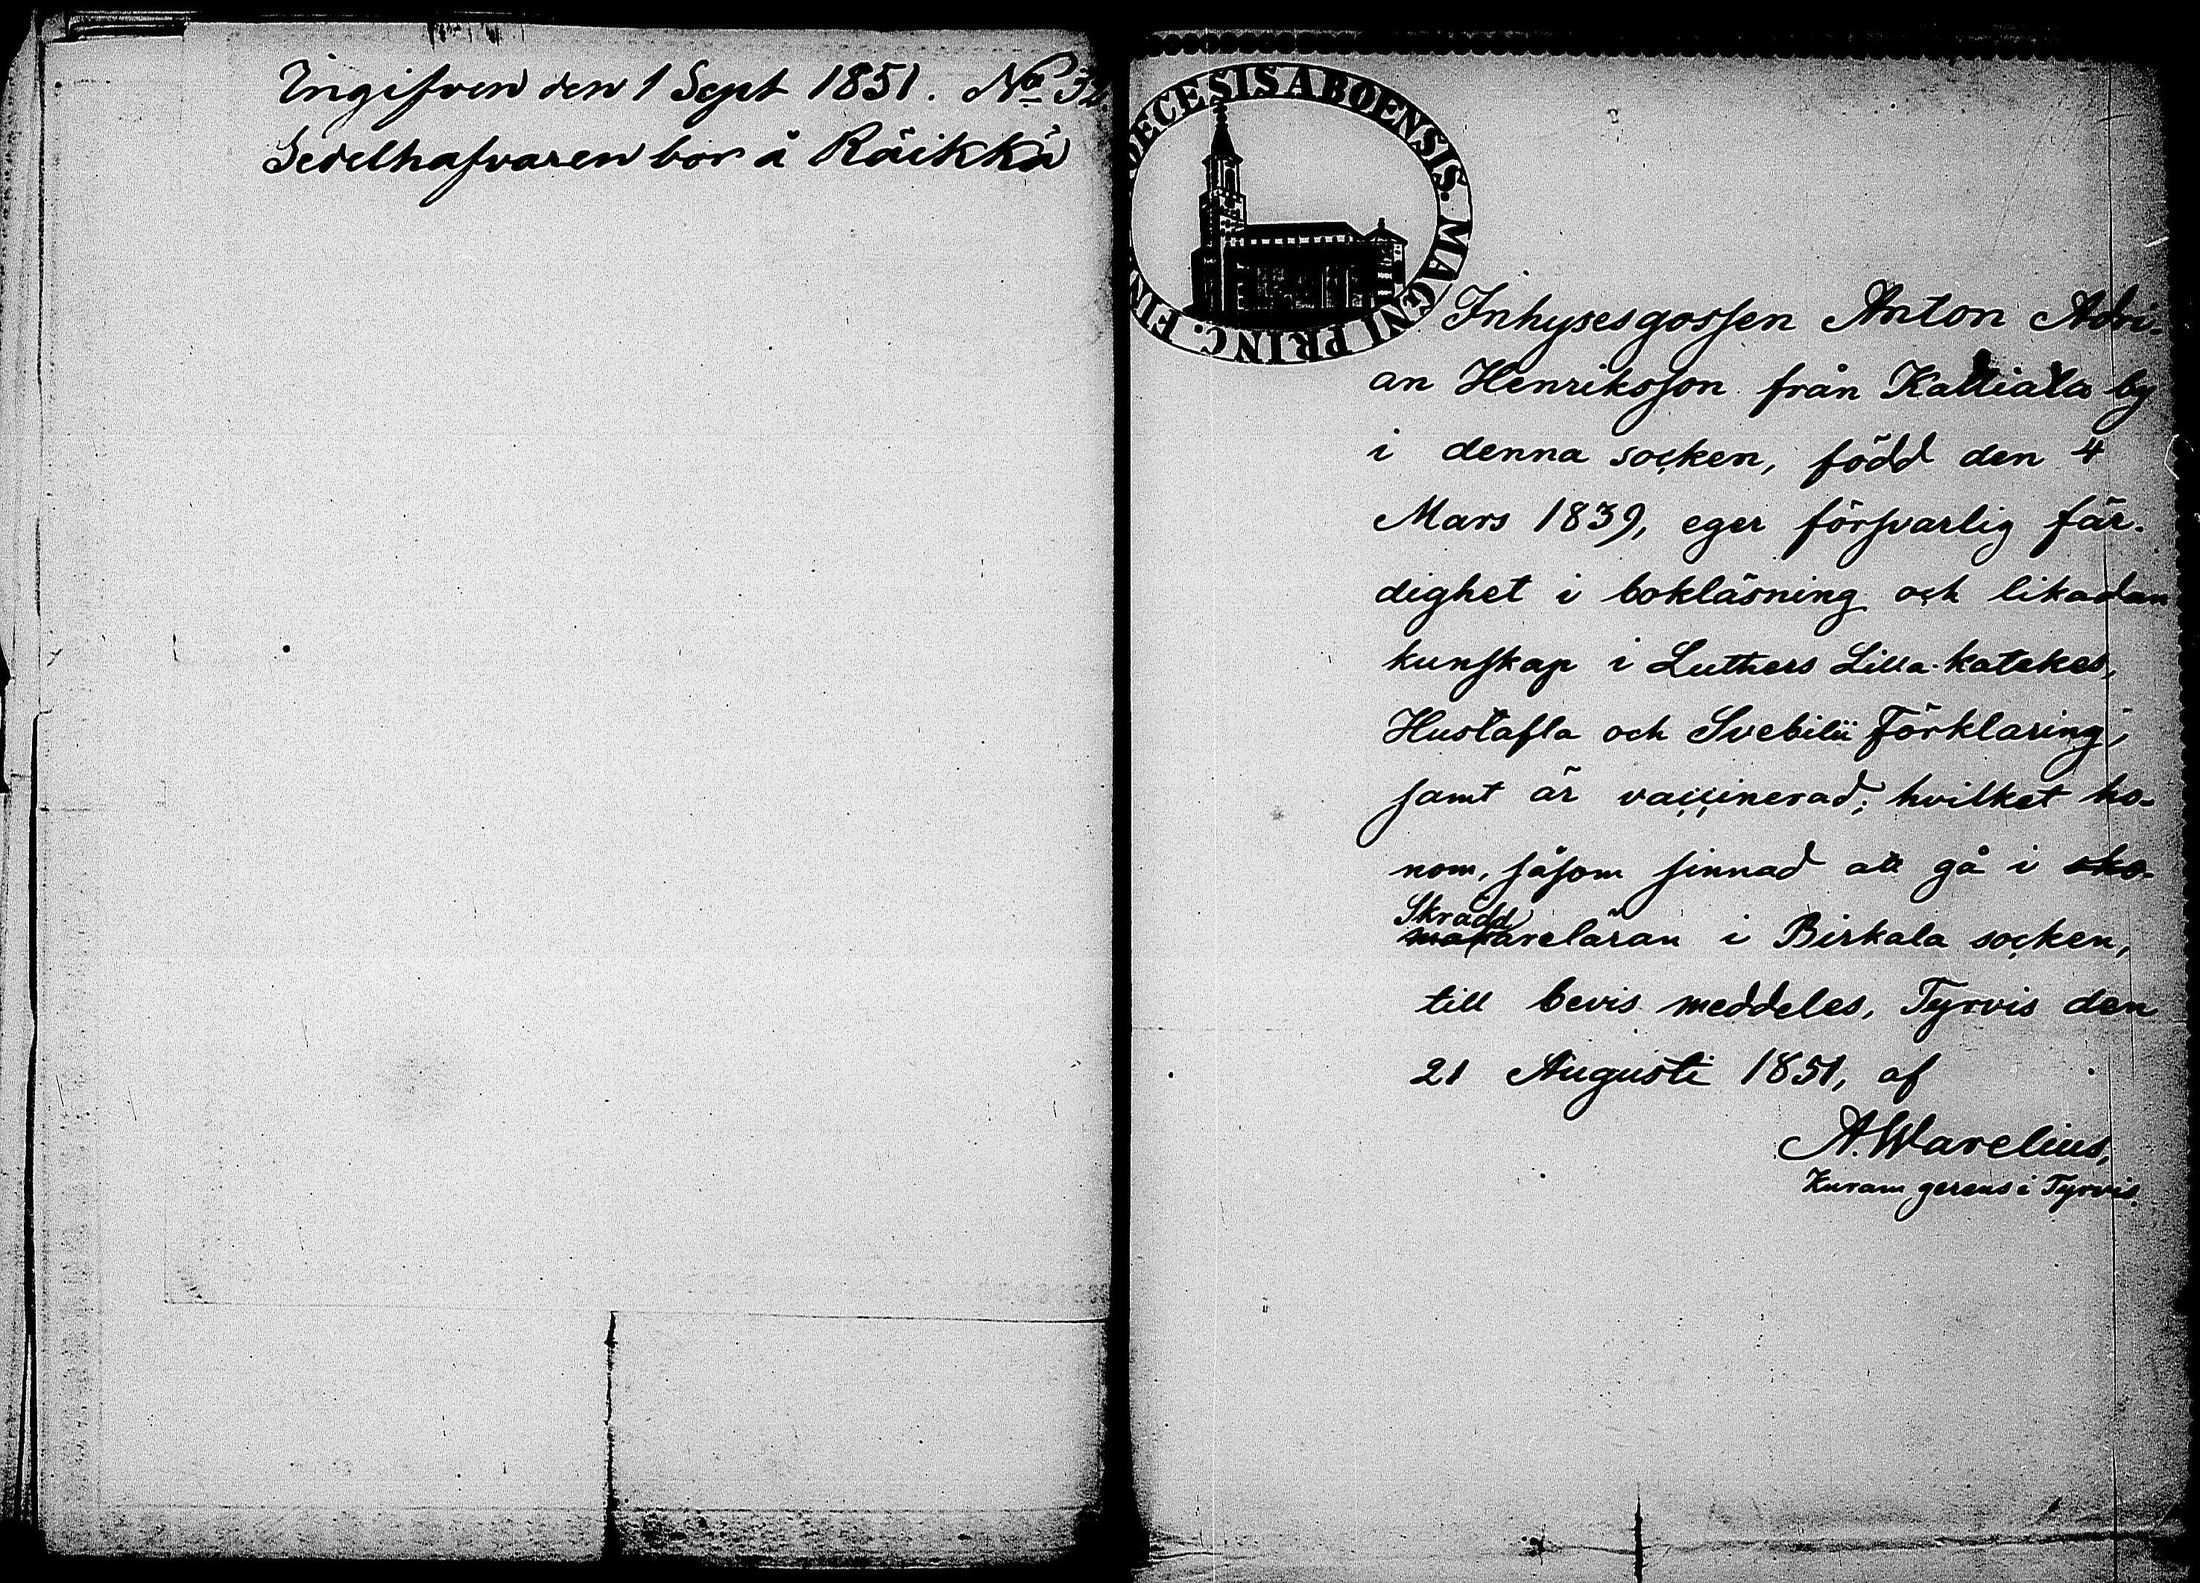 Ingifven den 1 Sept 1851. No 32.
Sedelhafvaren bor å Räikkä
DIOECESIS ABOENSIS. MAGNI PRINC. FIN
Inhysesgossen Anton Adri-
an Henriksson från Kalliala by
i denna socken, född den 4
Mars 1839, eger försvarlig fär-
dighet i bokläsning och likadan
kunskap i Luthers Lilla katekes,
Hustafla och Svebilii Förklaring,
samt är vaccinerad; hvilket ho-
nom, såsom sinnad att gå i sko-
Skrädd
makareläran i Birkala socken,
till bevis meddeles, Tyrvis den
21 Augusti 1851, af
A. Warelius,
Kuram gerens i Tyrvis.